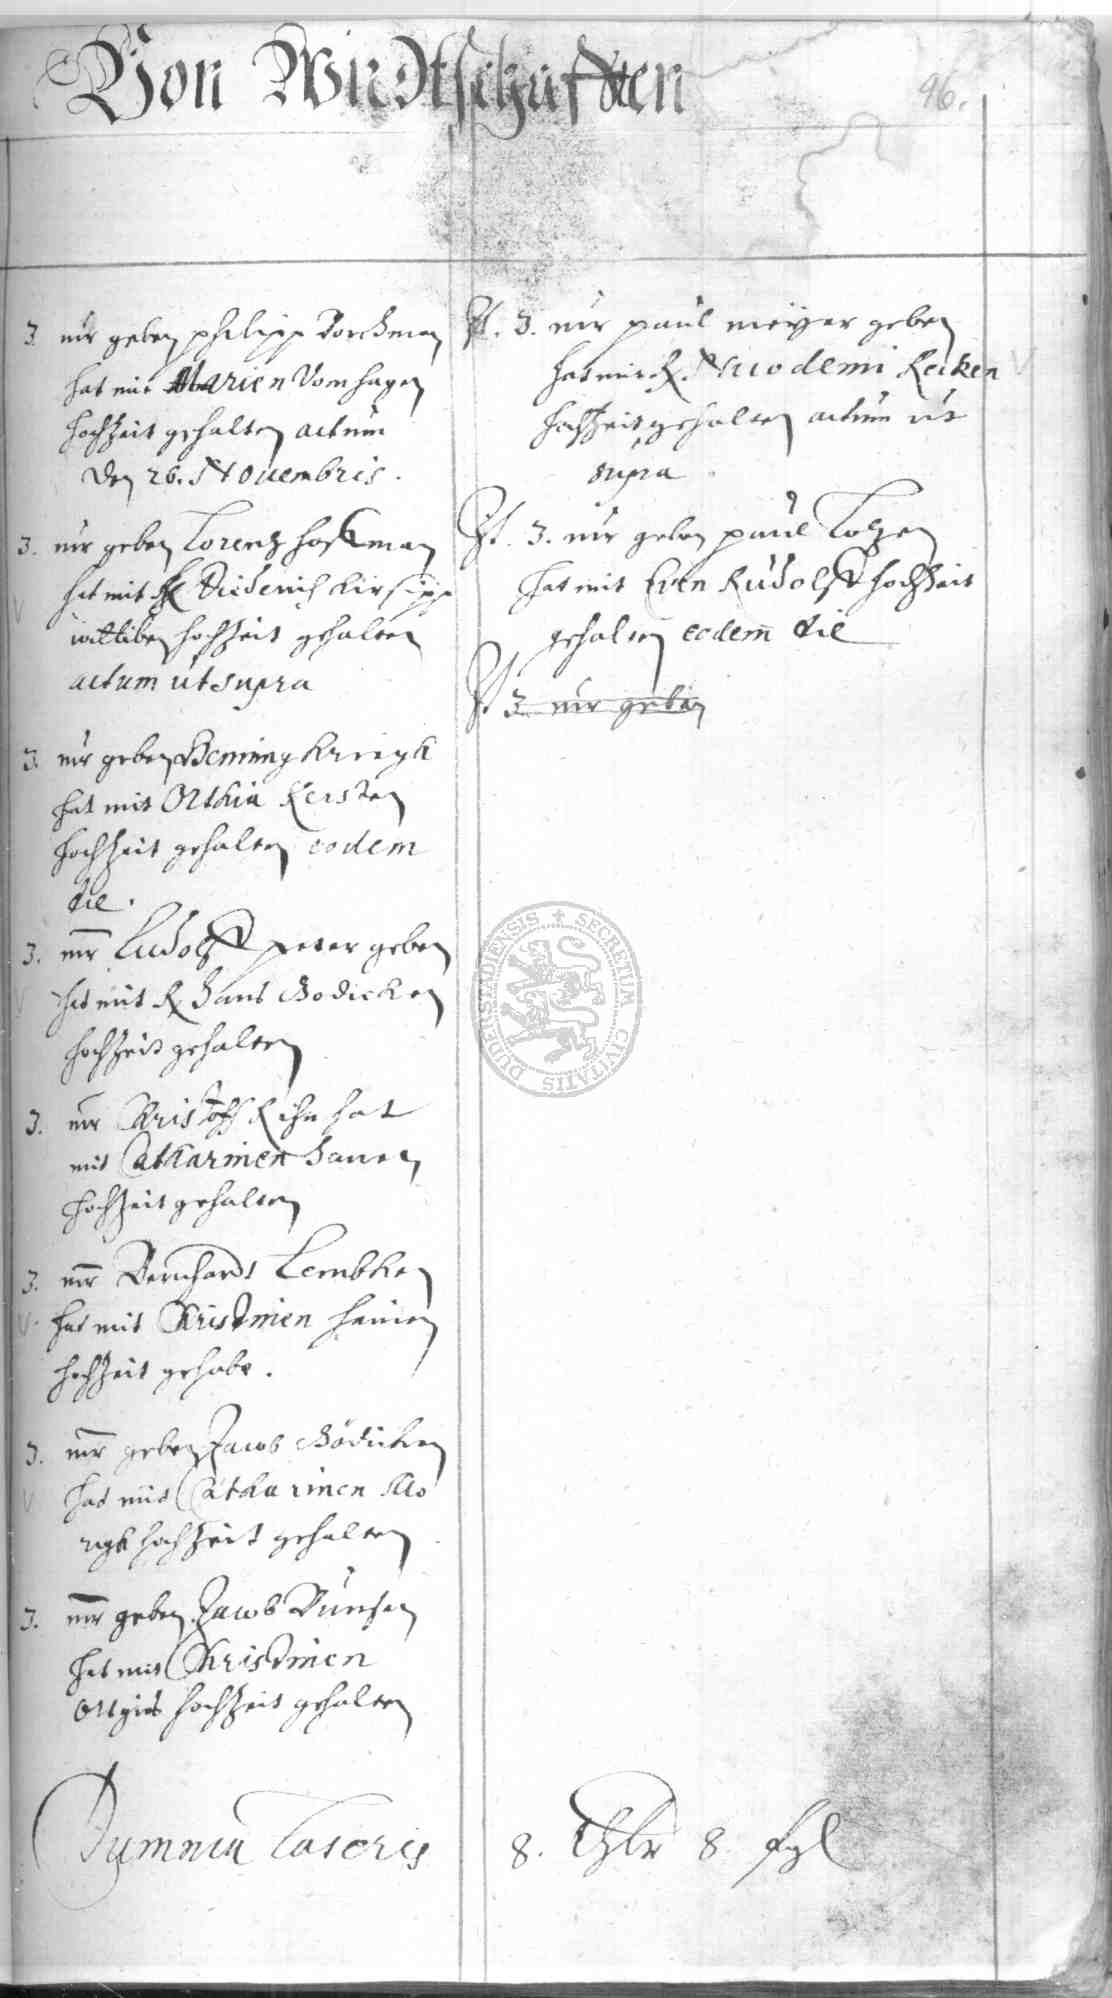 Von Wirdtschafften
96.
3. mr geben philipp Borchman
hat mit Marien Vom hagen
hochzeit gehalten actum
den 26. Nouembris.
3. mr geben Lorentz hoffman
hat mit Diederich
wittiben hochzeit gehalten
actum ut supra
3. mr geben Henning Kriegk
hat mit Orthia Kersten
hochzeit gehalten eodem
die.
3. mr Ludolff peter geben
hat mit R Hans Bodicken
hochzeit gehalten
3. mr Christoff Kihn hat
mit Catharinen
hochzeit gehalten
3. mr Bernhardt Lembken
hat mit Christinen heinen
hochzeit gehabt.
3. mr geben Jacob Bödicken
hat mit Catharinen Mo
rigk hochzeit gehalten
3. mr geben Jacob Bünsen
hat mit Christinen
hochzeit gehalten
Summa Lateris 8. Thlr 8. fgl
It. 3. mr paul meyer geben
hat mit R. Nicodemi Recken
hochzeit gehalten actum ut
supra
It. 3. mr geben paul Lotzen
hat mit Even Rudolff hochzeit
gehalten eodem die
It 3 mr geben
DUDERSTADIENSIS SECRETUM CIVITATIS